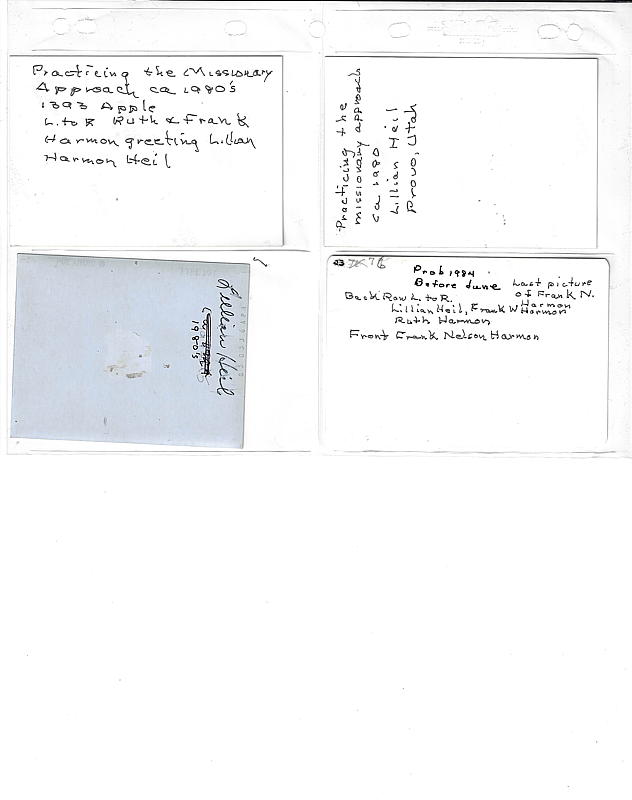 Practicing the Missionary
Approach ca 1980's
1393 Apple
L. to R Ruth & Frank
Harmon greeting Lillian
Harmon Heil
Practicing the
missionary approach
ca 1980
Lillian Heil
Provo, Utah
Lillian Heil
1980's
Prob 1984
Before June
Last picture
of Frank N.
Harmon
Back Row L. to R.
Lillian Heil, Frank W Harmon
Ruth Harmon
Front Frank Nelson Harmon